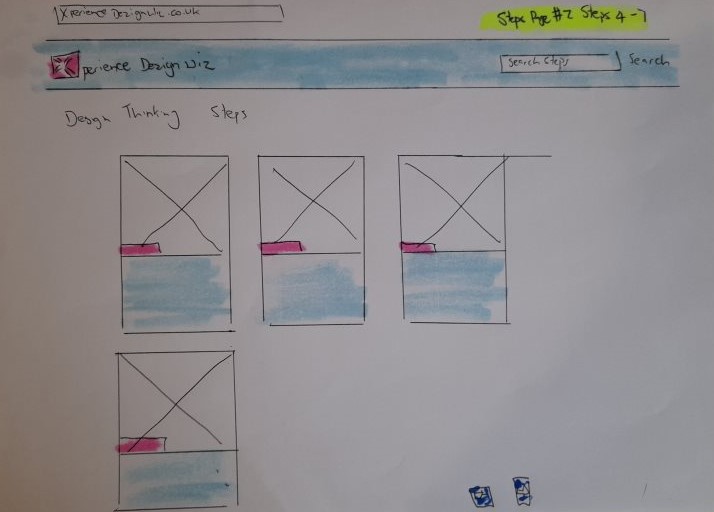 Xperience Designwiz.co.uk
Steps Page #2 Steps 4-7
Xperience Design wiz
Search Steps
Search
Design Thinking Steps